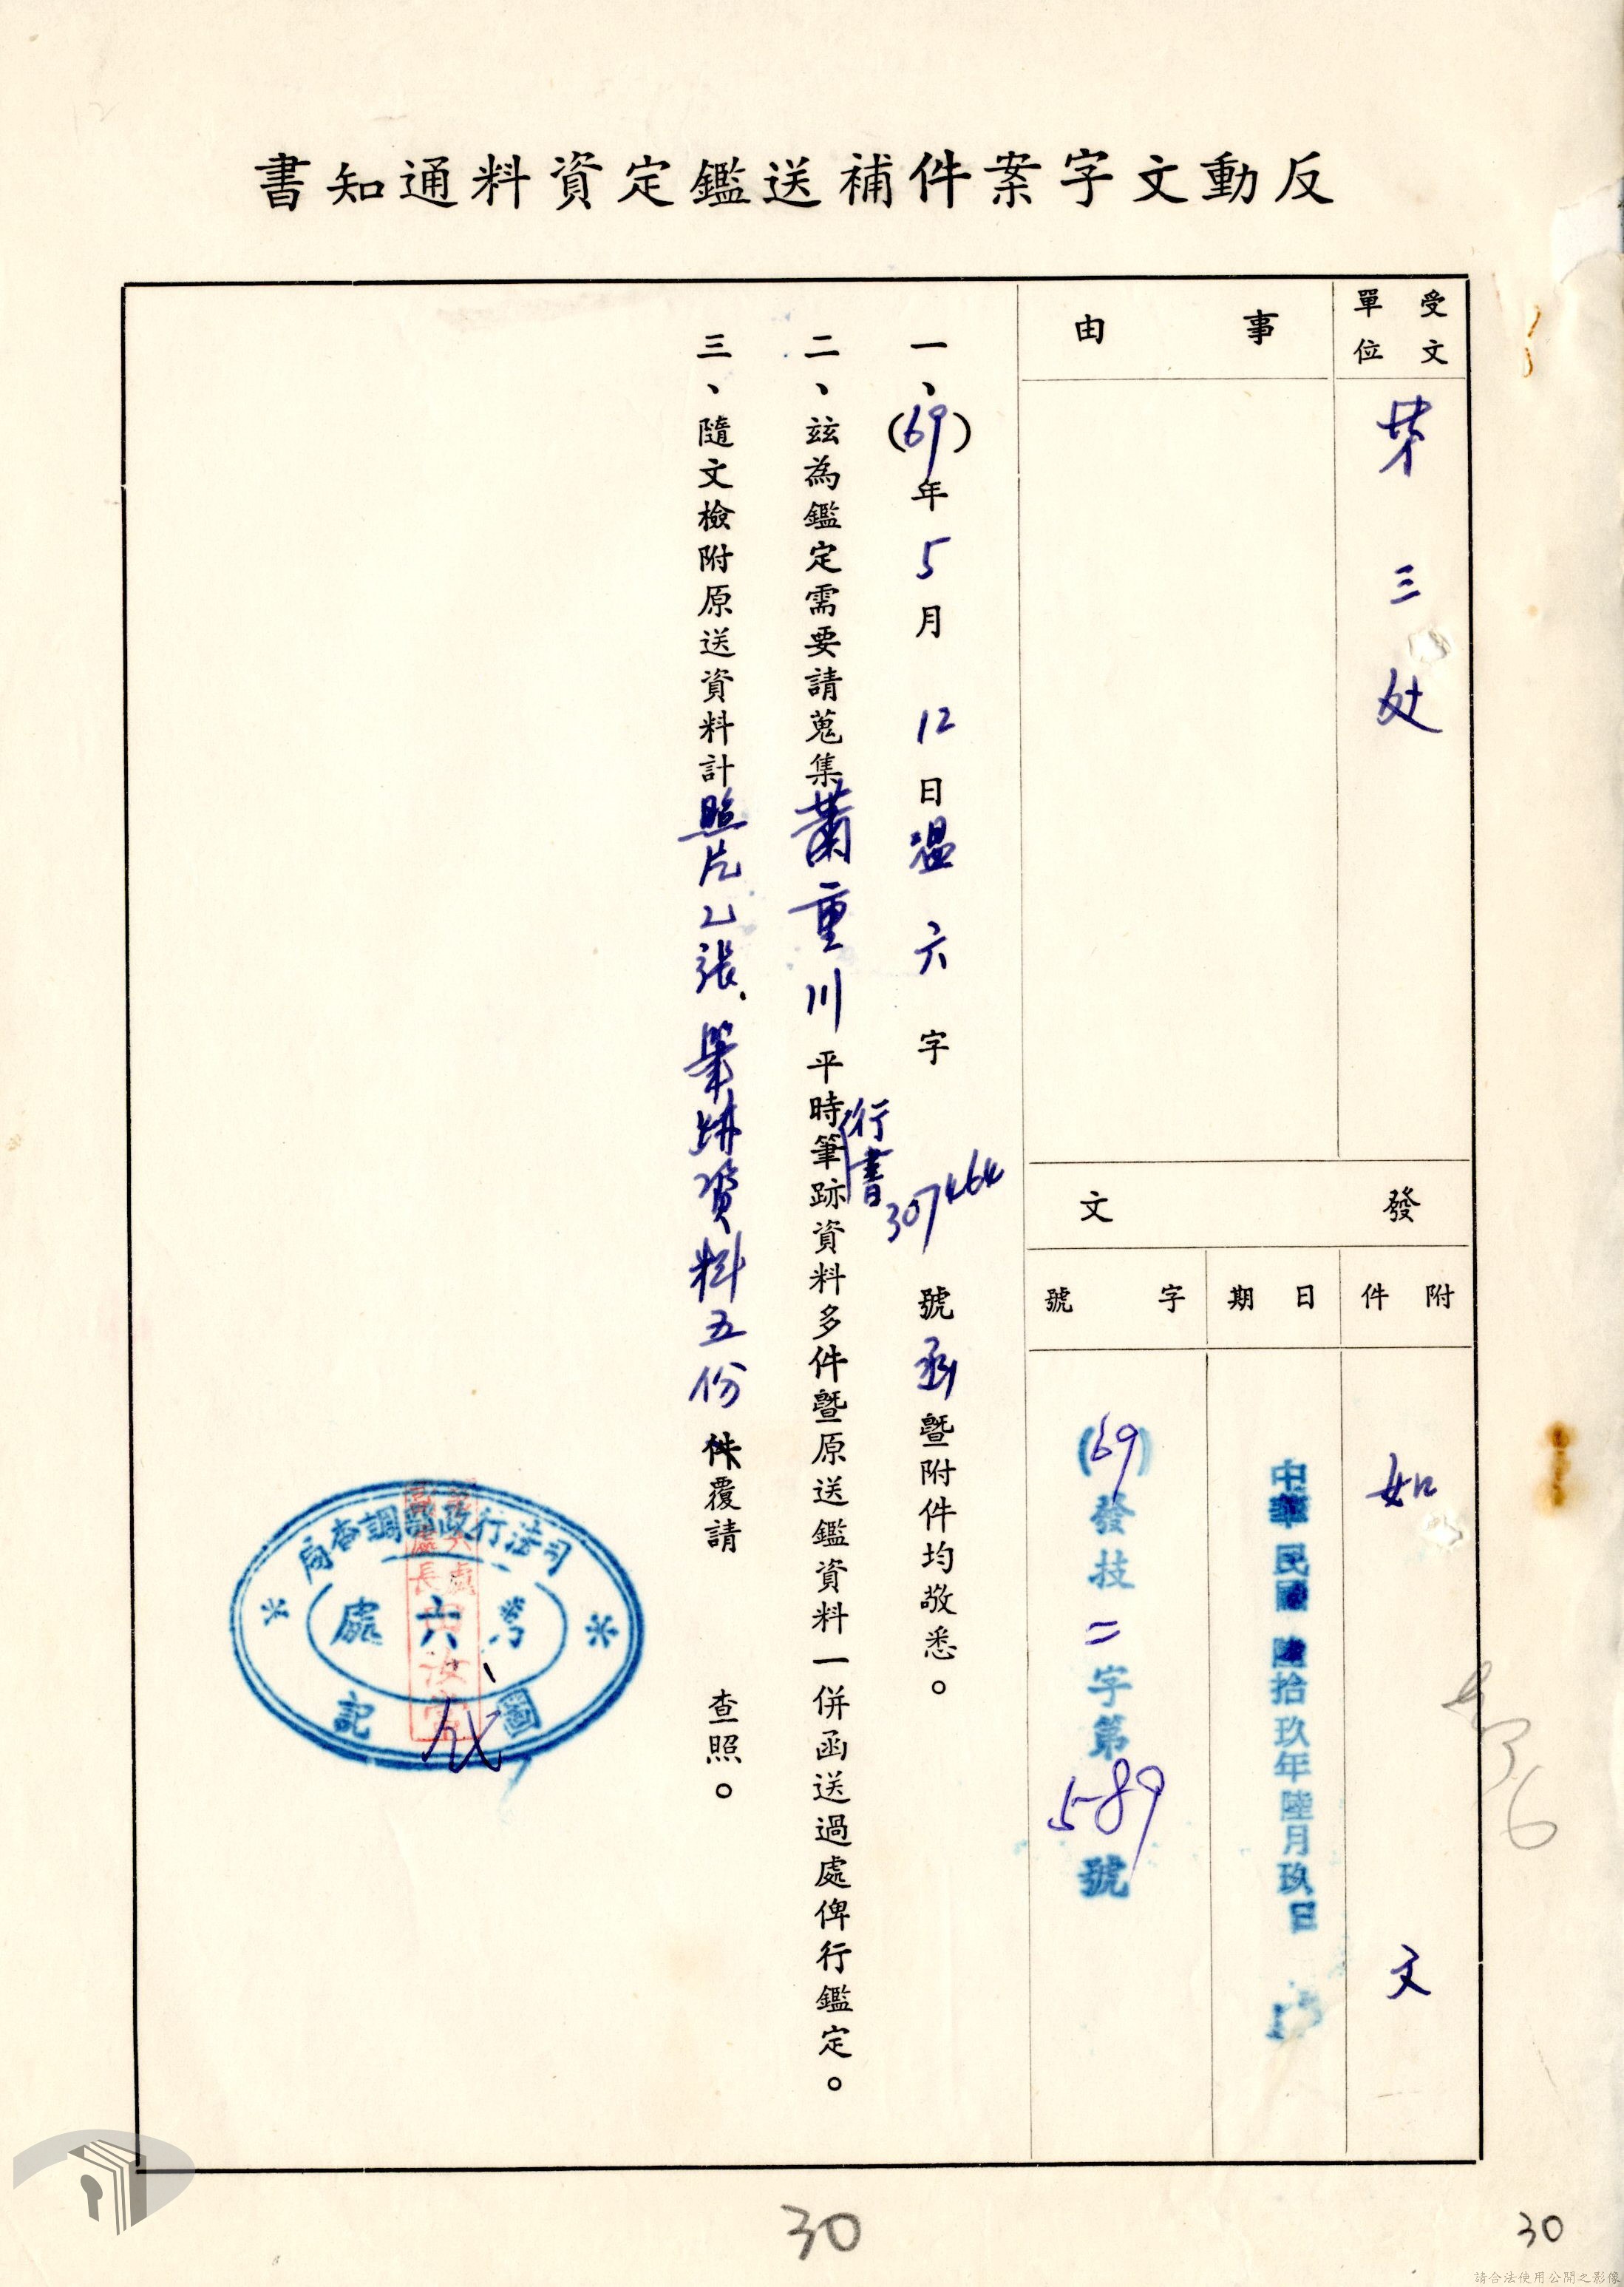 反動文字案件補送鑑定資料通知書
受文單位
第三处
事由
發文
附件
如文
日期
中華民國陸拾玖年陸月玖日
字號
(69)發技二字第589號
一、(69)年5月12日温六字307464號函暨附件均敬悉。
二、茲為鑑定需要請蒐集蕭重川平時筆跡資料多件暨原送鑑資料一併函送過處俾行鑑定。
行書
三、隨文檢附原送資料計照片乙張、筆跡資料五份件覆請查照。
司法行政部調查局
第六處
圖記
30
30
請合法使用公開之影像